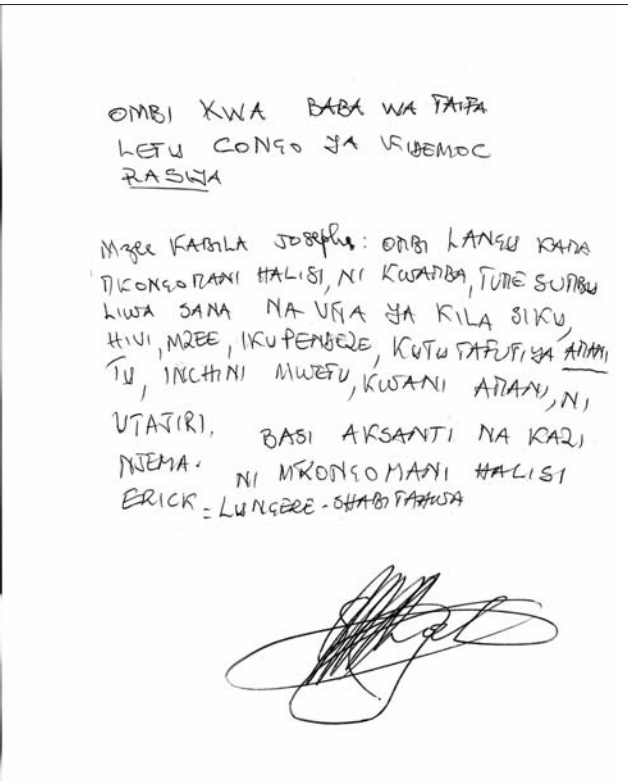 OMBI KWA BABA WA TAIFA
LETU CONGO YA KIDEMOC
RASIYA
Mzee KABILA Joseph: OMBI LANGU KAMA
MKONGOMANI HALISI, NI KWAMBA, TUME SUMBU
LIWA SANA NA VITA YA KILA SIKU,
HIVI, MZEE, IKUPENDEZE, KUTU TAFUTIYA AMANI
TU, INCHINI MWETU, KWANI AMANI, NI
UTAJIRI. BASI AKSANTI NA KAZI
NJEMA. NI MKONGOMANI HALISI
ERICK = LUNGERE -